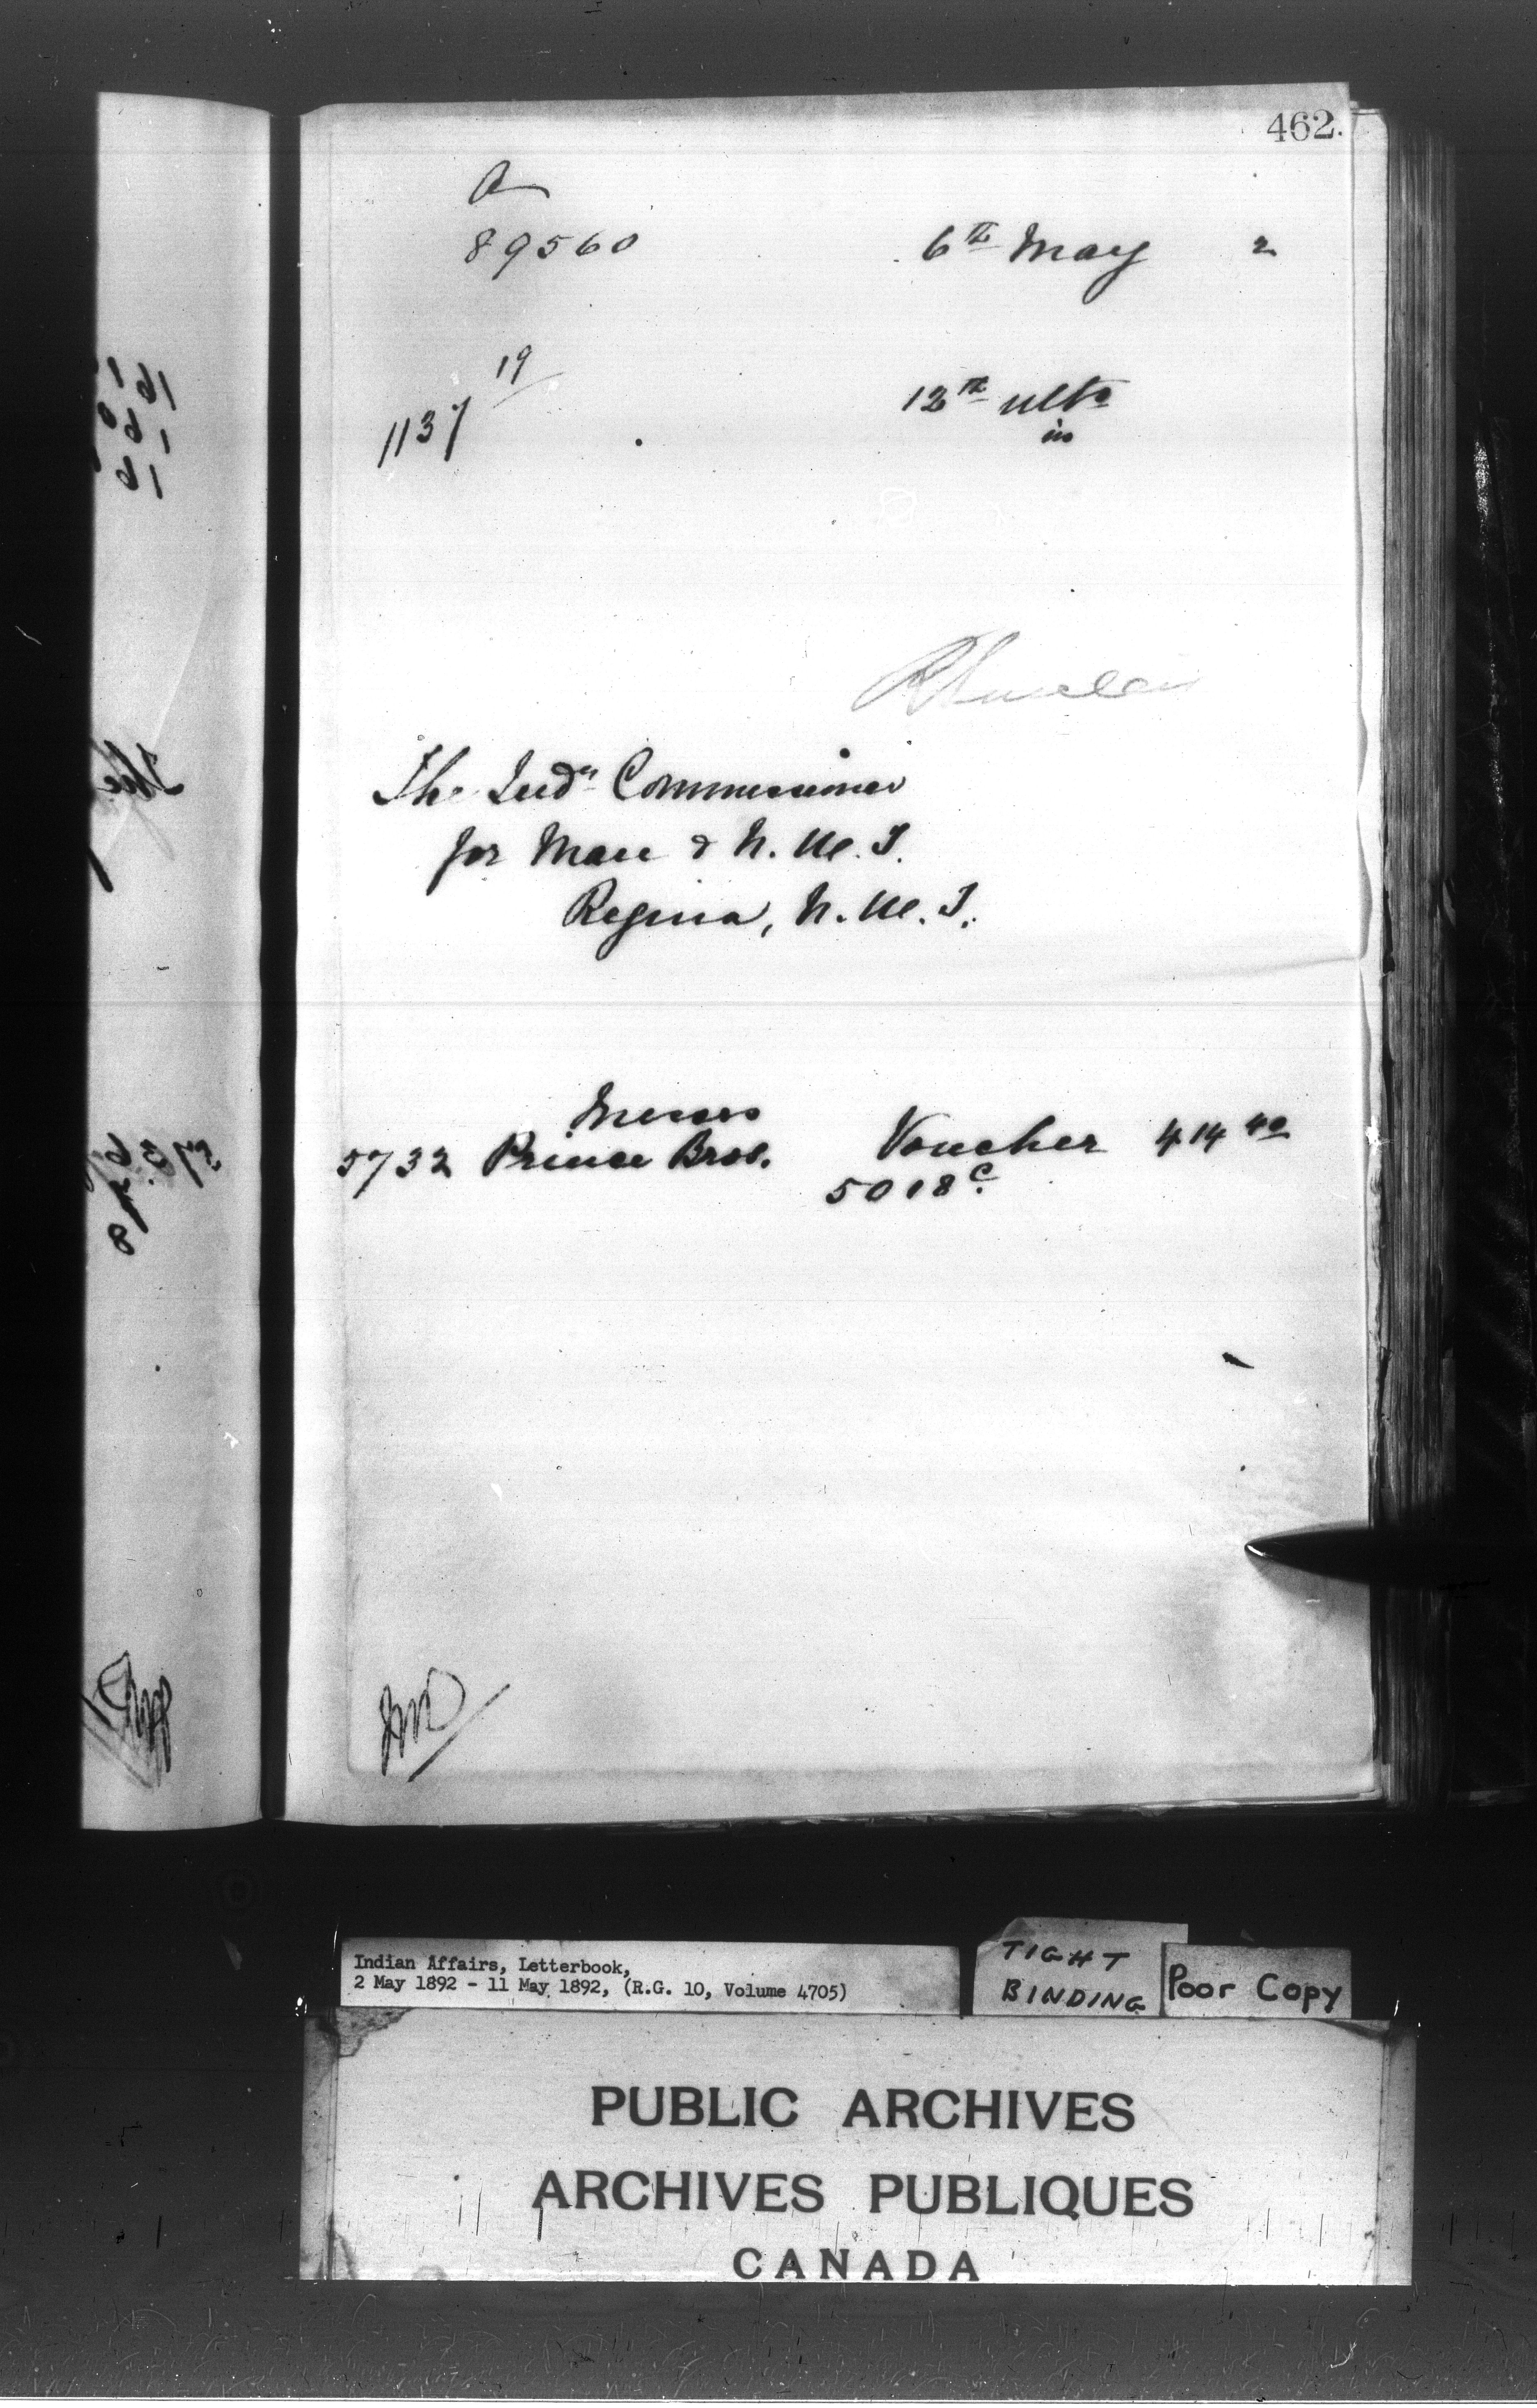 462.
A
89560 6th May 2
19/
1137 12th ulto
in
The Indn Commissioner
for Man & N. W. T.
Regina, N. W. T.
Messrs
5732 Prince Bros. Voucher 414 40
5018c.
Indian Affairs, Letterbook,
2 May 1892 - 11 May 1892, (R.G. 10, Volume 4705)
TIGHT
BINDING
Poor Copy
PUBLIC ARCHIVES
ARCHIVES PUBLIQUES
CANADA